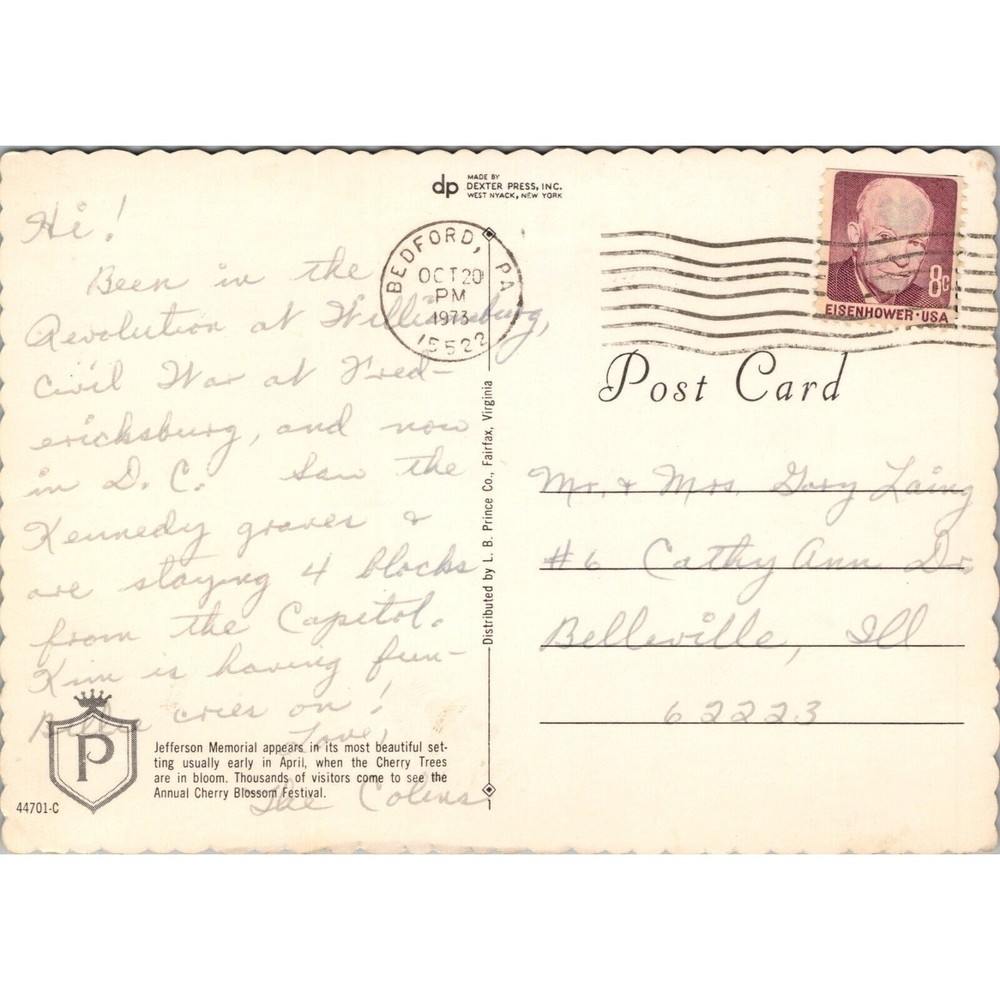 MADE BY
dp DEXTER PRESS, INC.
WEST NYACK, NEW YORK
Hi!
Been in the
Revolution at Williamsburg,
Civil War at Fred-
ericksburg, and now
in D.C. Saw the
Kennedy graves &
are staying 4 blocks
from the Capitol.
Kim is having fun-
cries on!
Love,
The Colins
BEDFORD, PA
OCT 20
PM
1973
15522
8c
EISENHOWER·USA
Post Card
Mr. & Mrs. Gary Laing
#6 Cathy Ann Dr.
Belleville, Ill
62223
Distributed by L. B. Prince Co., Fairfax, Virginia
P
Jefferson Memorial appears in its most beautiful set-
ting usually early in April, when the Cherry Trees
are in bloom. Thousands of visitors come to see the
Annual Cherry Blossom Festival.
44701-C